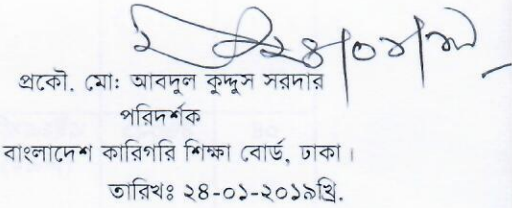 ২৪/০১/১৯
প্রকৌ. মোঃ আবদুল কুদ্দুস সরদার
পরিদর্শক
বাংলাদেশ কারিগরি শিক্ষা বোর্ড, ঢাকা।
তারিখঃ ২৪-০১-২০১৯খ্রি.